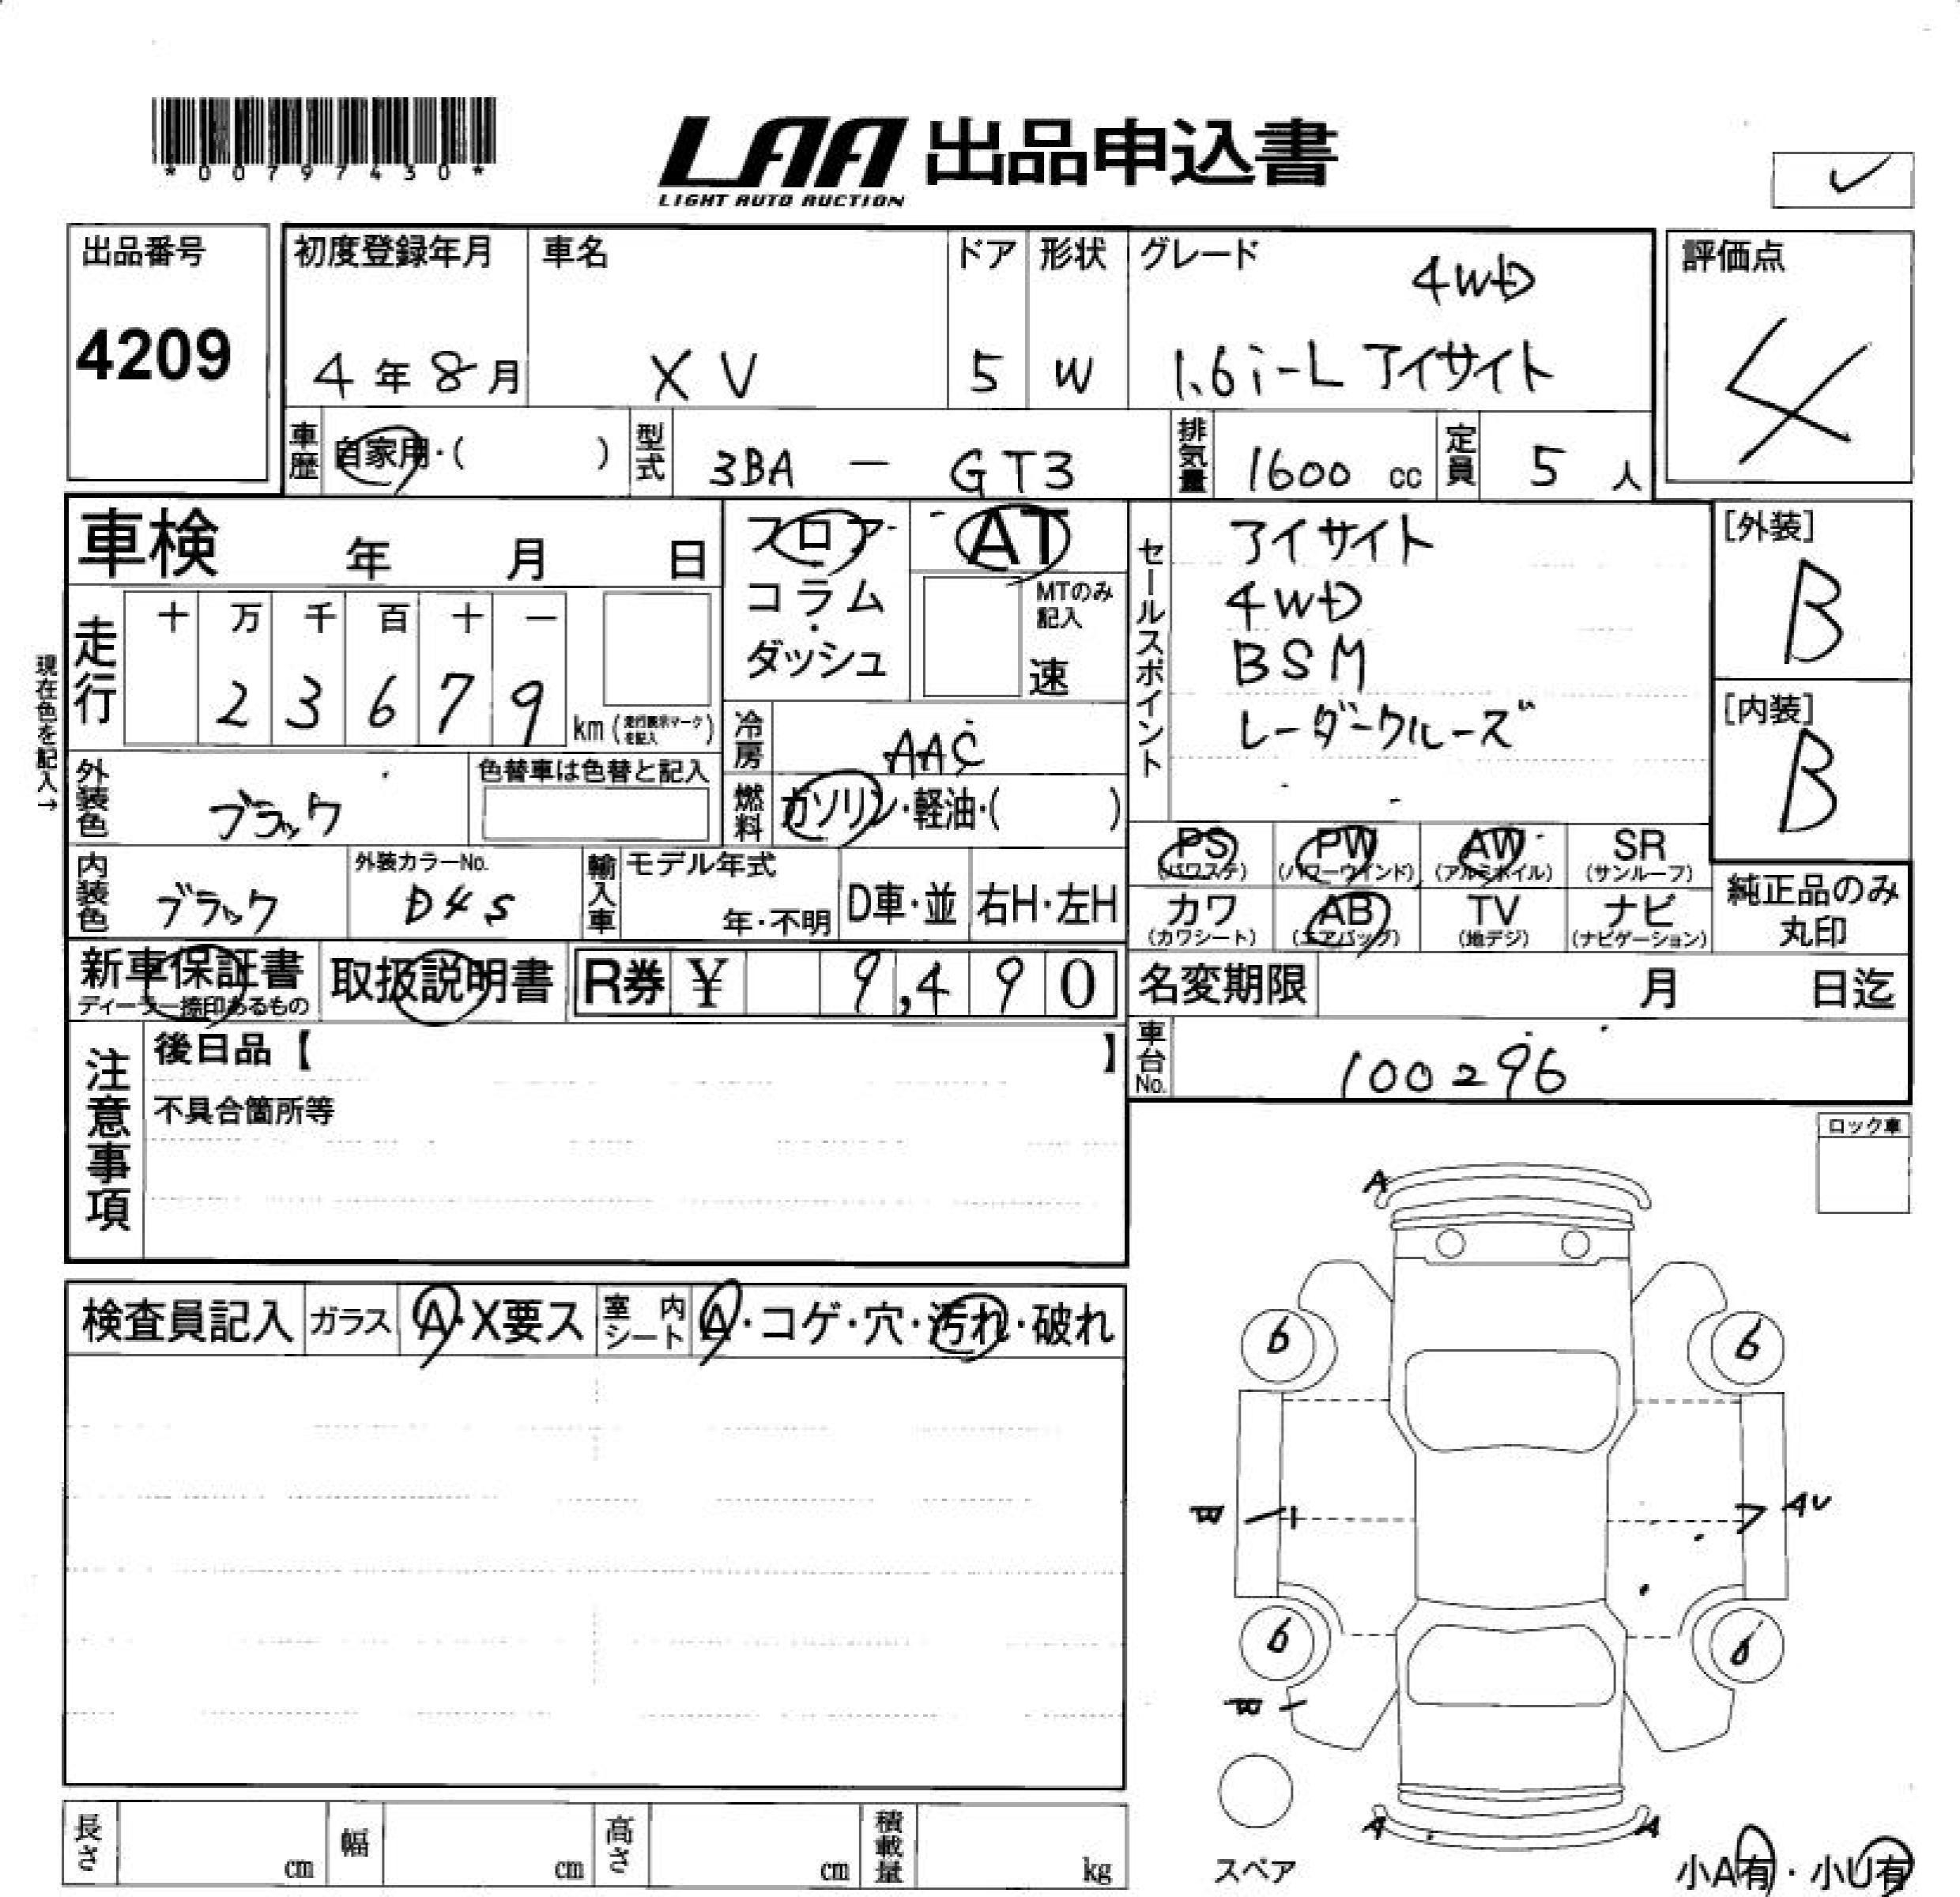 *00797430*
LAA 出品申込書
LIGHT AUTO AUCTION
出品番号
4209
初度登録年月
4年8月
車名
XV
ドア
5
形状
W
グレード
4WD
1.6i-L アイサイト
評価点
4
車歴 自家用・( )
型式 3BA - GT3
排気量 1600 cc
定員 5 人
車検 年 月 日
フロア・
コラム・
ダッシュ
AT
MTのみ記入
速
セールスポイント
アイサイト
4WD
BSM
レーダークルーズ
[外装]
B
[内装]
B
現在色を記入→
走行
十 万 千 百 十 一
2 3 6 7 9
km (走行表示マークを記入)
冷房 AAC
燃料 ガソリン・軽油・( )
外装色 ブラック
色替車は色替と記入
内装色 ブラック
外装カラーNo.
D4S
輸入車 モデル年式
年・不明
D車・並
右H・左H
PS (パワステ)
PW (パワーウインド)
AW (アルミホイル)
SR (サンルーフ)
カワ (カワシート)
AB (エアバッグ)
TV (地デジ)
ナビ (ナビゲーション)
純正品のみ
丸印
新車保証書
ディーラー捺印あるもの
取扱説明書
R券 ¥ 9,490
名変期限 月 日迄
車台No. 100296
注意事項
後日品【 】
不具合箇所等
ロック車
検査員記入
ガラス A・X要ス
室内シート A・コゲ・穴・汚れ・破れ
A
6 6
AU
6 6
A A
スペア
小A有・小U有
長さ cm
幅 cm
高さ cm
積載量 kg